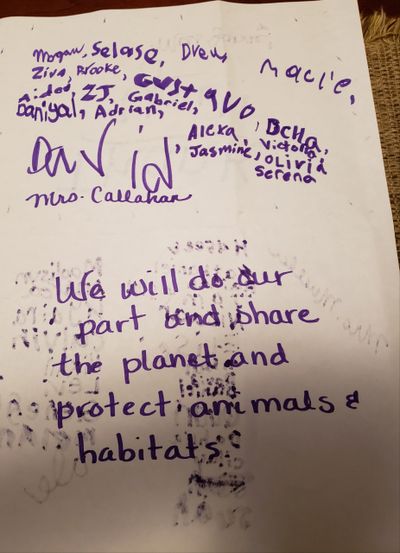 Morgan, Selase, Drew, Macie,
Ziva, Brooke, Gustavo,
Aidan, ZJ, Gabriel,
Daniyal, Adrian,
David, Alexa, Victoria,
Jasmine, Olivia
Serena
Mrs. Callahan
We will do our
part and share
the planet and
protect animals &
habitats.